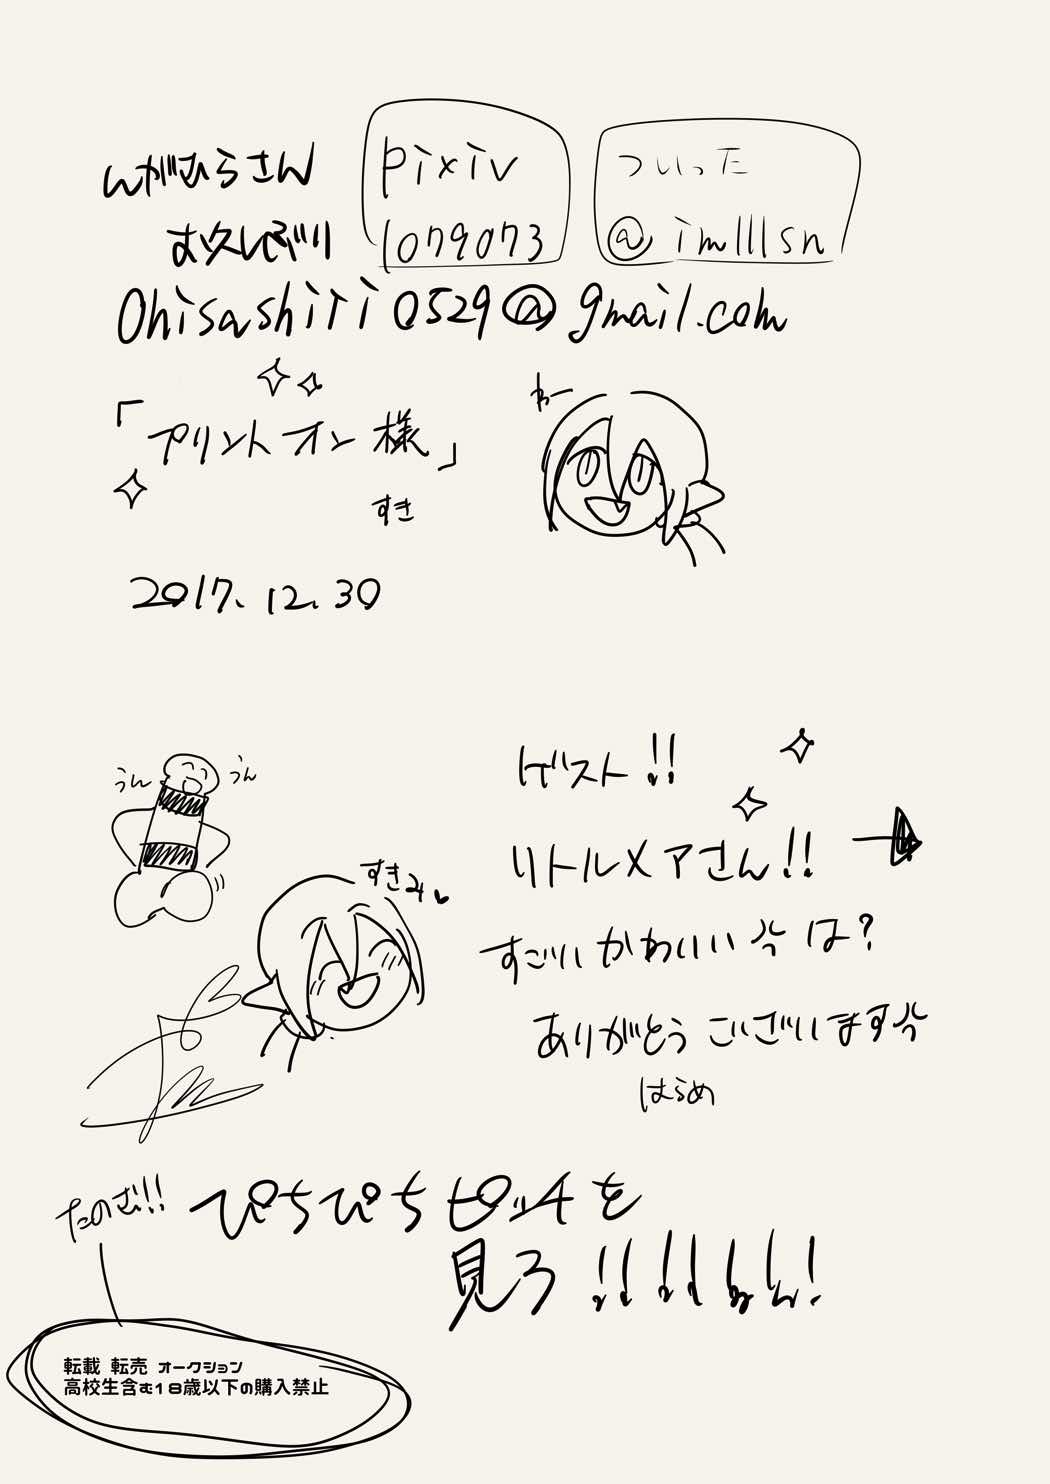 んがひらさん
お久しぶり
pixiv
1079073
ついった
@imlllsn
Ohisashiri0529@gmail.com
「プリントオン様」
すき
わー
2017.12.30
うん
うん
ゲスト!!
リトルメアさん!!
すきみ♥
すごいかわいい は?
ありがとうございます
はらめ
たのむ!!
ぴちぴちピッチを
見ろ
転載 転売 オークション
高校生含む18歳以下の購入禁止